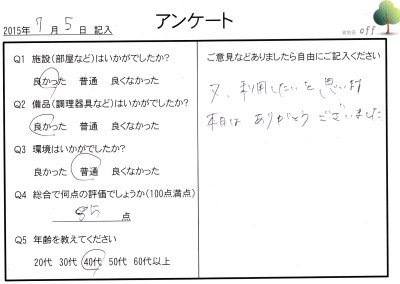 アンケート
2015年 7月 5日 記入
Q1 施設(部屋など)はいかがでしたか?
良かった 普通 良くなかった
Q2 備品(調理器具など)はいかがでしたか?
良かった 普通 良くなかった
Q3 環境はいかがでしたか?
良かった 普通 良くなかった
Q4 総合で何点の評価でしょうか(100点満点)
85 点
Q5 年齢を教えてください
20代 30代 40代 50代 60代以上
ご意見などありましたら自由にご記入ください
又、利用したいと思います
本日は ありがとう ございました